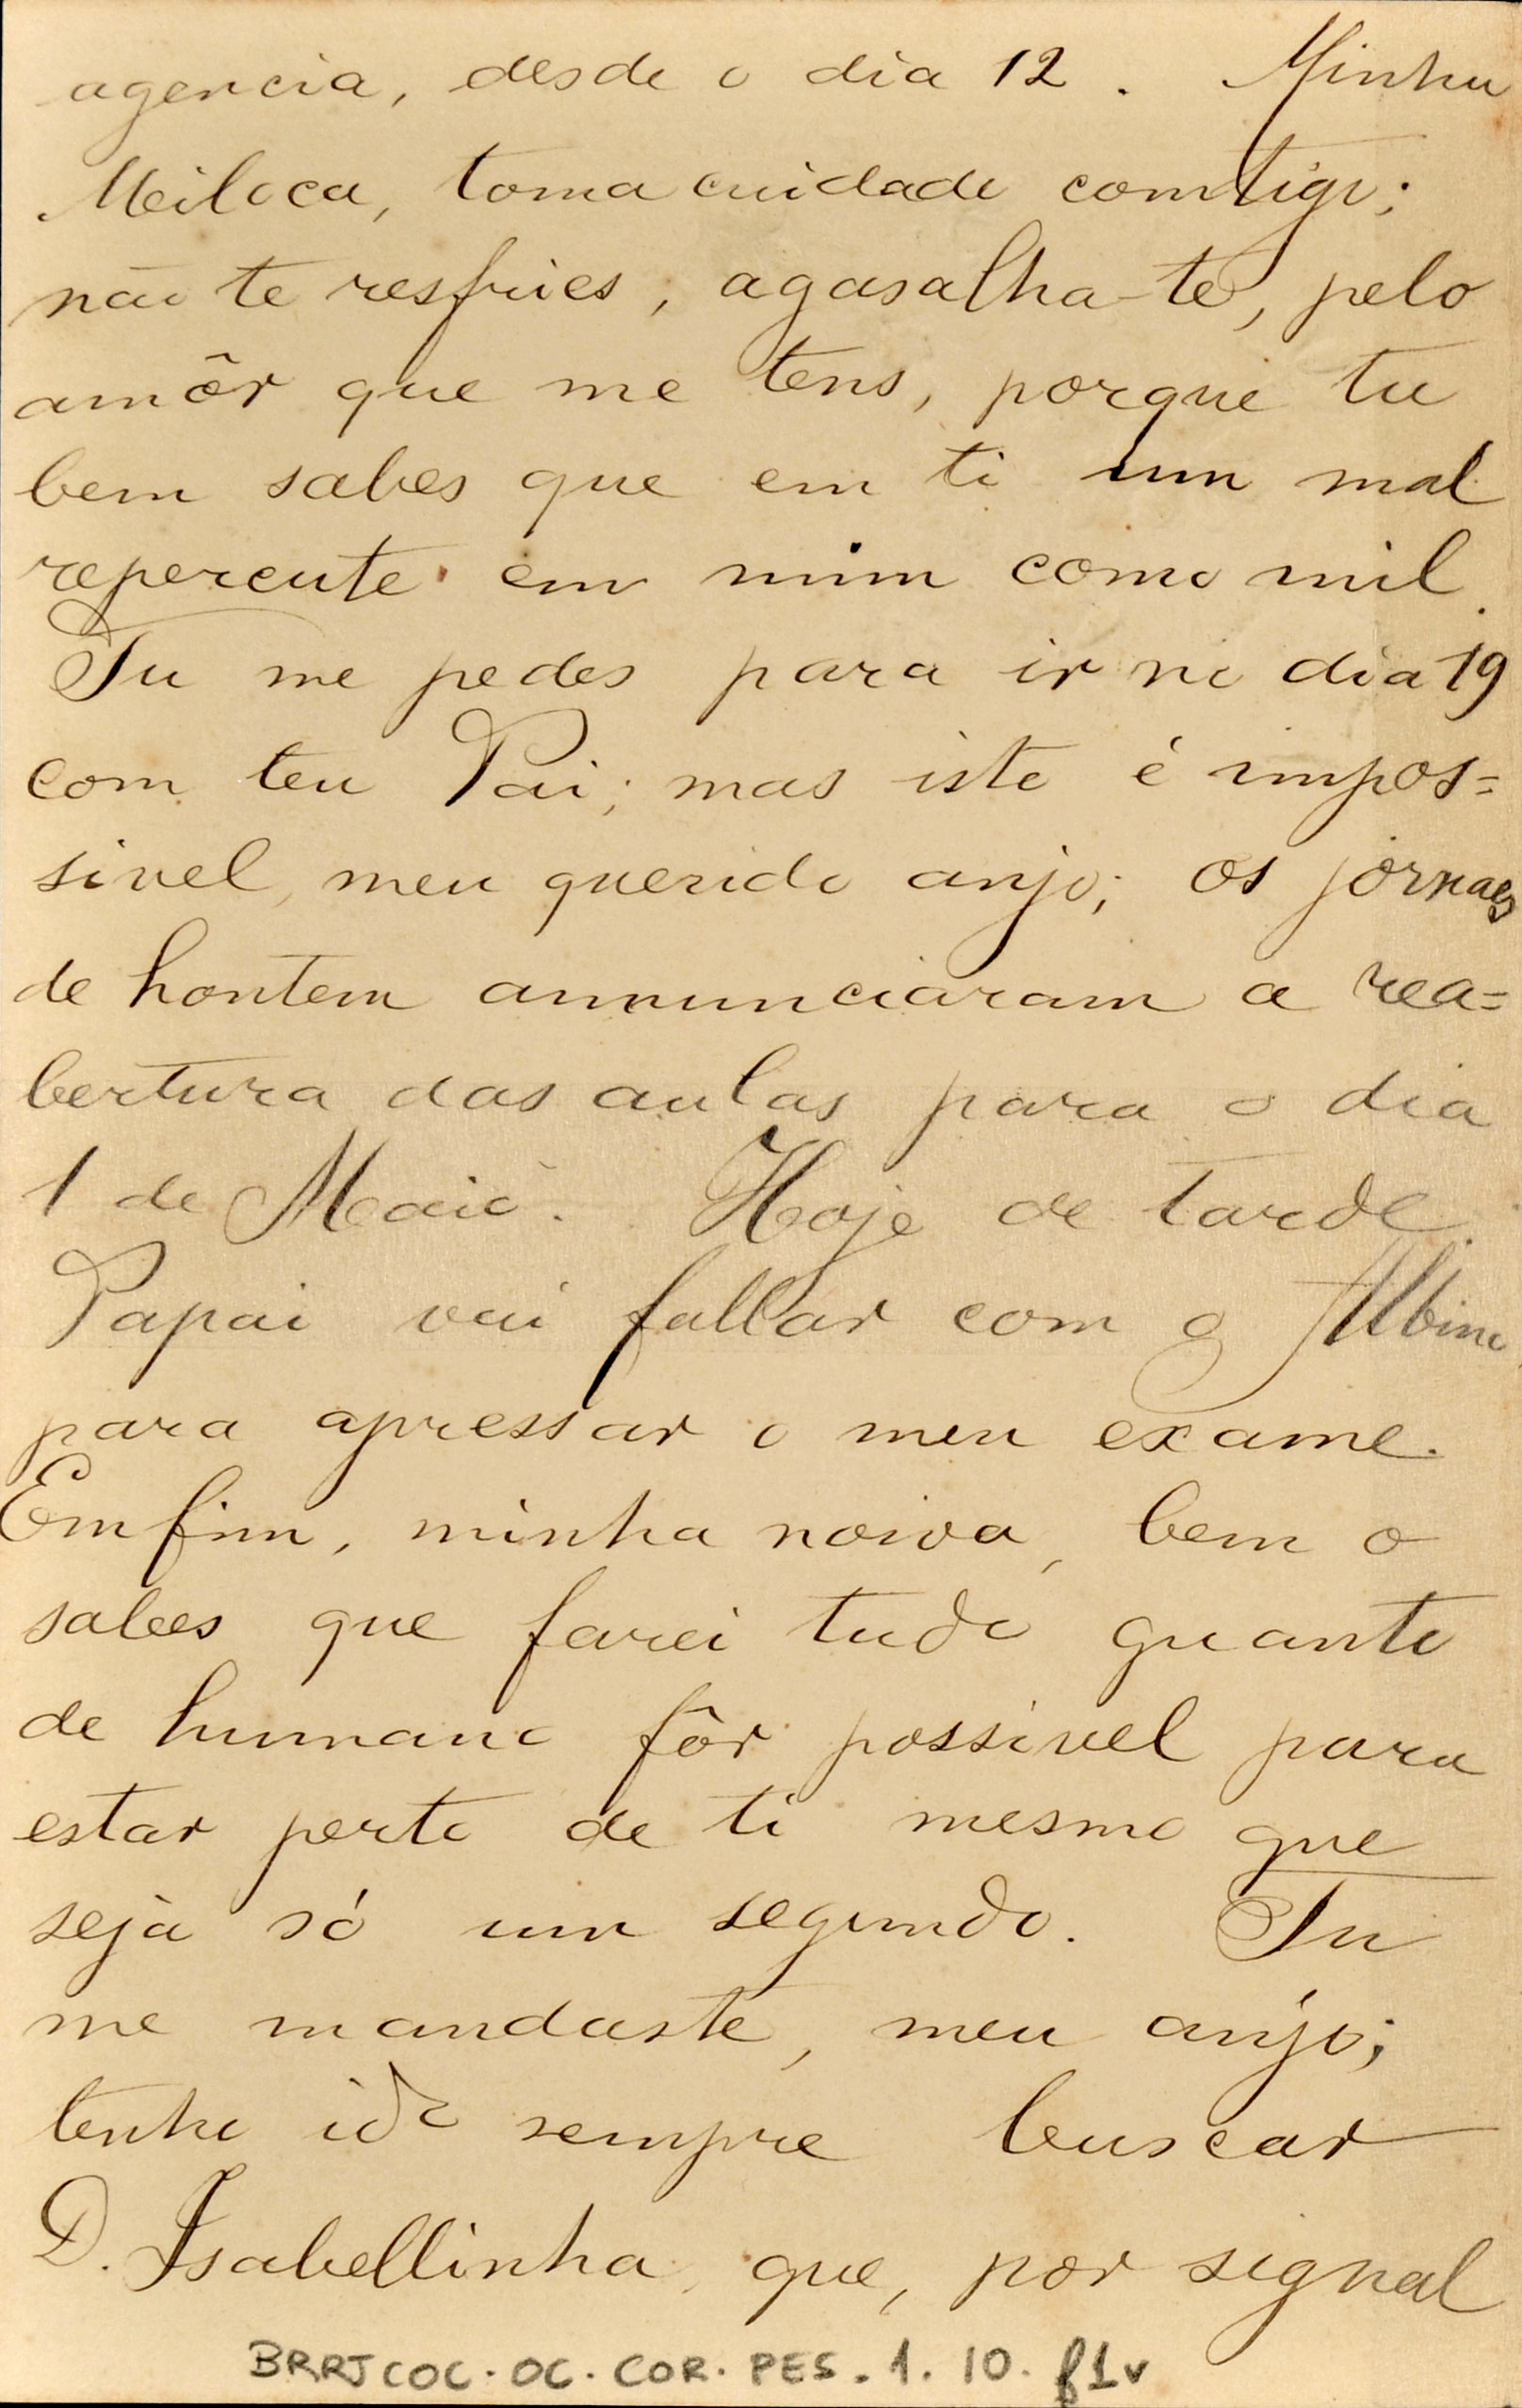 agencia, desde o dia 12. Minha
Meiloca, toma cuidado comtigo;
não te resfries, agasalha-te, pelo
amôr que me tens, porque tu
bem sabes que em ti um mal
repercute em mim como mil.
Tu me pedes para ir no dia 19
com teu Pai; mas isto é impos=
sivel, meu querido anjo; os jornaes
de hontem annunciaram a rea=
bertura das aulas para o dia
1 de Maio. Hoje de tarde
Papai vai fallar com o Albino,
para apressar o meu exame.
Emfim, minha noiva, bem o
sabes que farei tudo quanto
de humano fôr possivel para
estar perto de ti mesmo que
seja só um segundo. Tu
me mandaste, meu anjo;
tenho ido sempre buscar
D. Isabellinha, que, por signal
BRRJCOC.OC.COR.PES.1.10.f1v